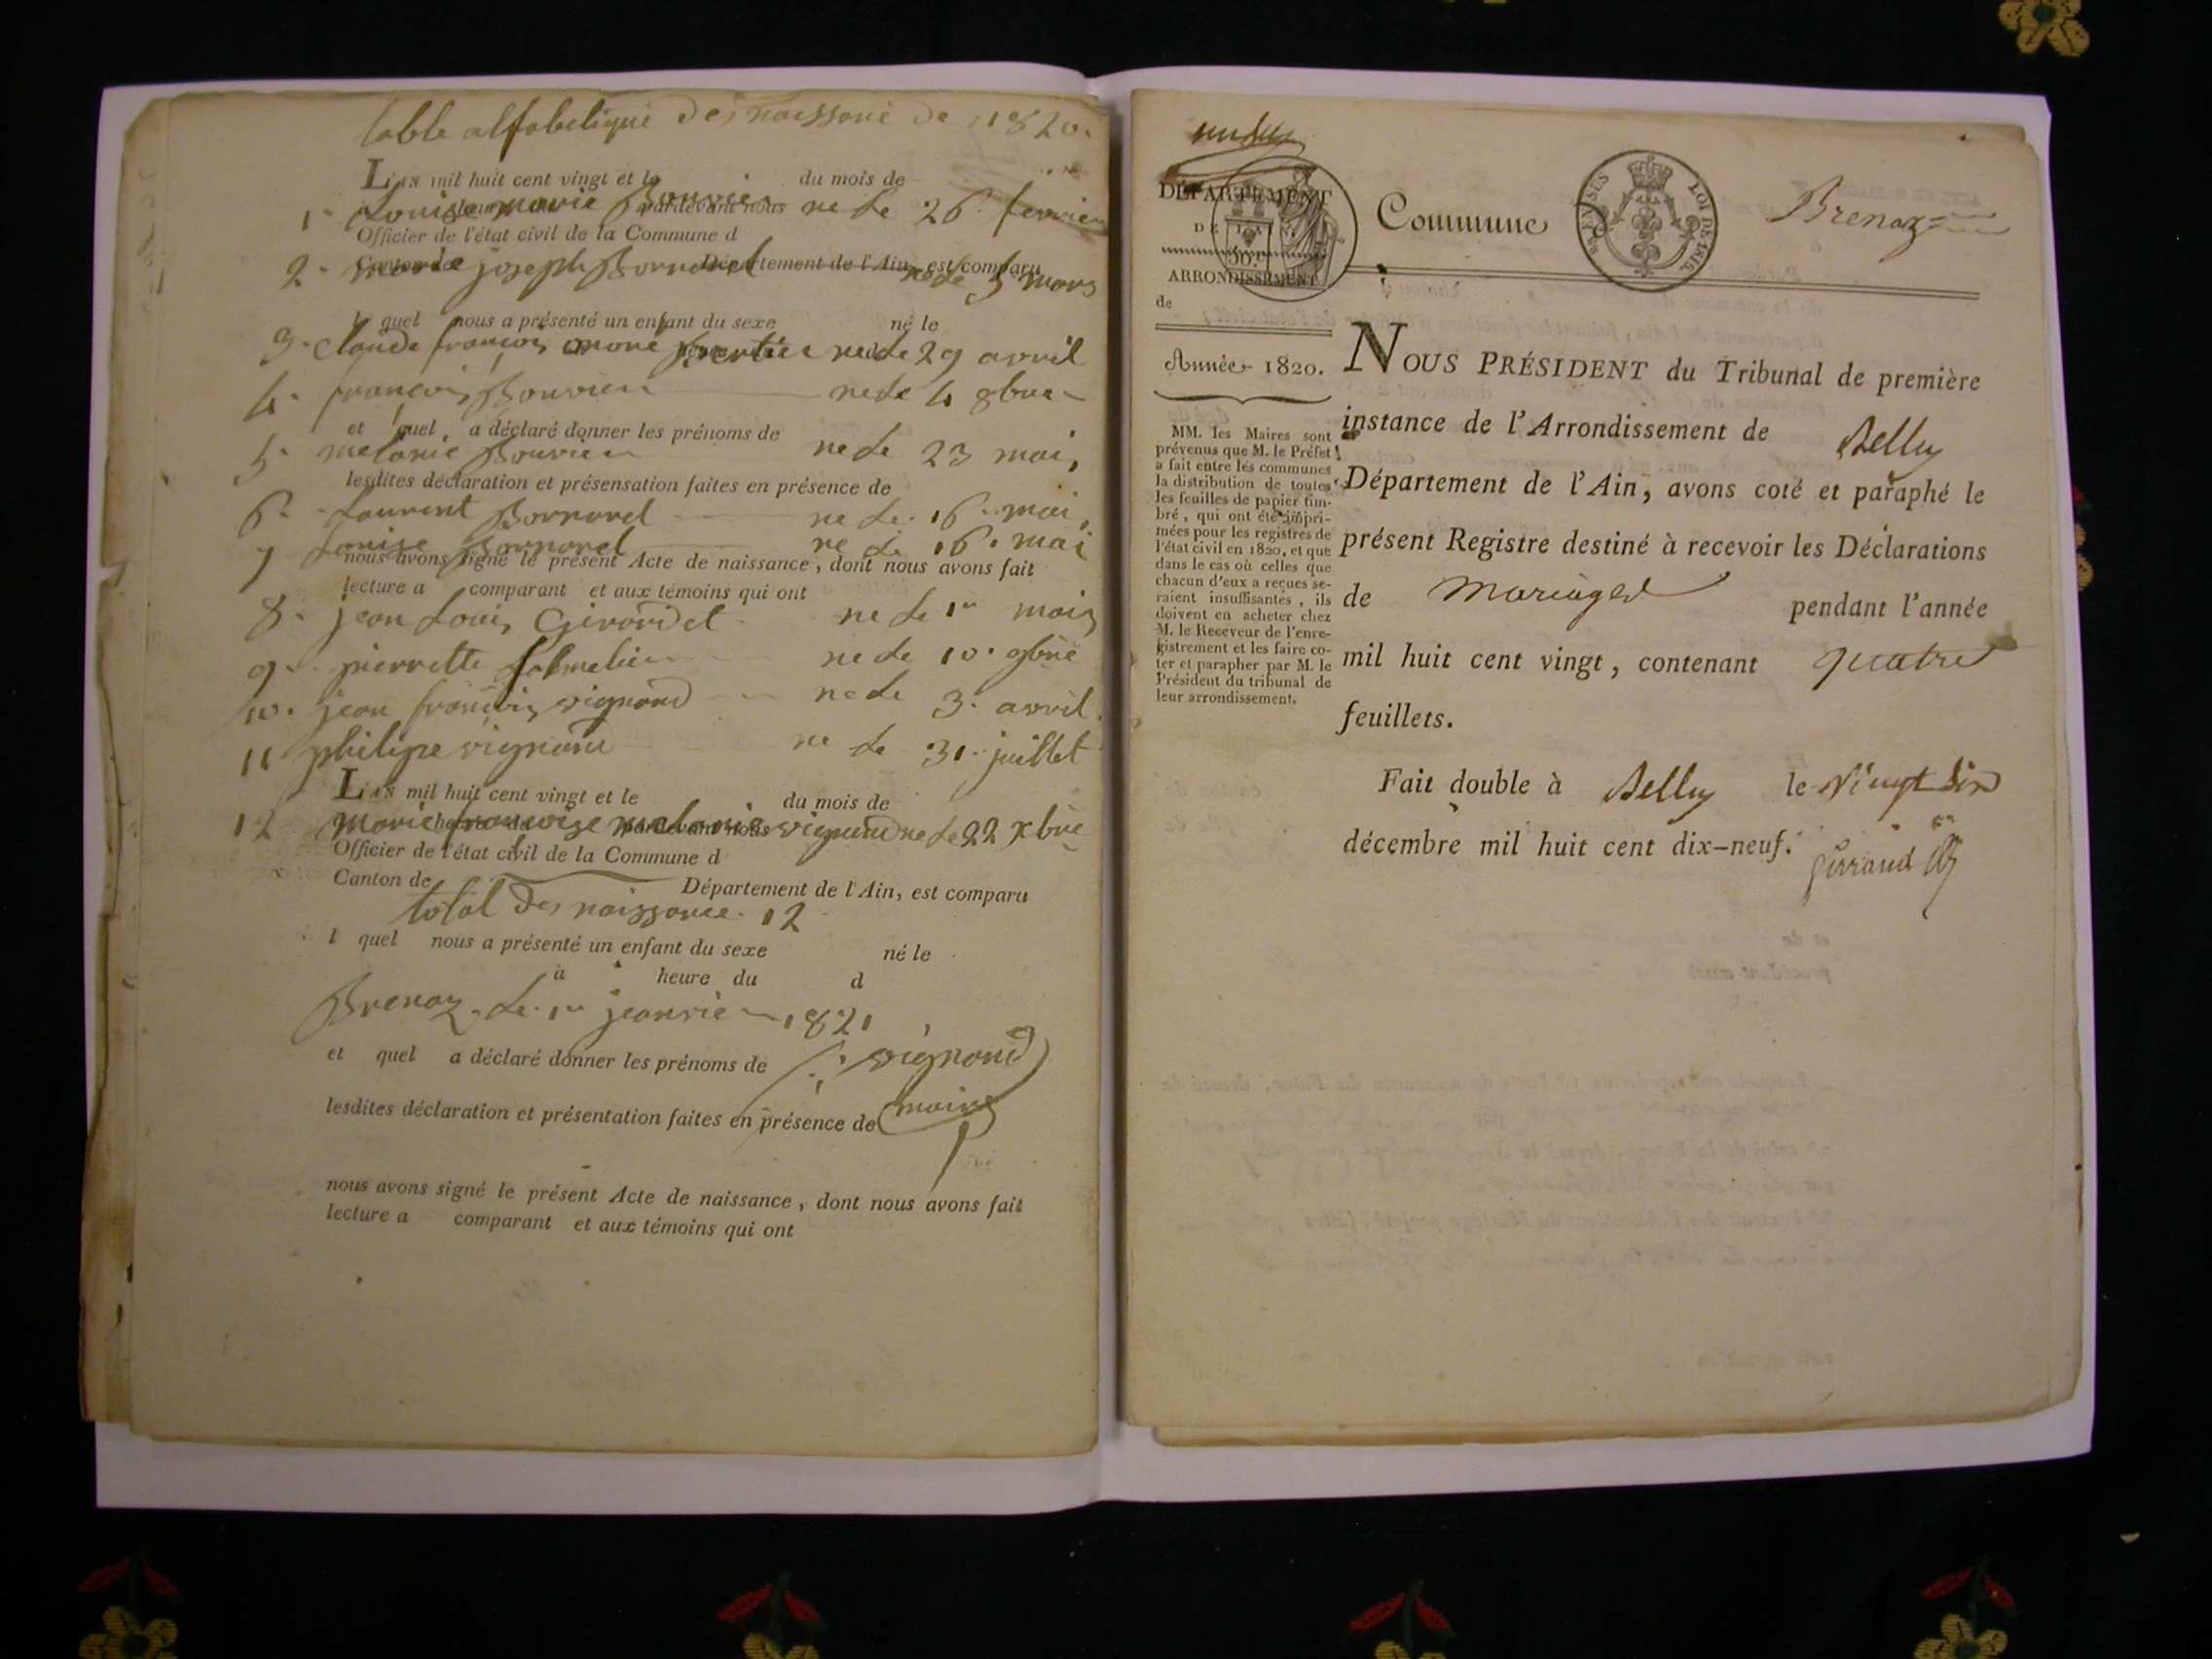 table alfabetique des naissance de 1820.
L'AN mil huit cent vingt et le du mois de
1. Louise marie Bouvier ne Le 26 fevrier
heure pardevant nous
Officier de l'état civil de la Commune d
2. marie joseph Bornarel ne Le 5 mars
Canton de Département de l'Ain, est comparu
l quel nous a présenté un enfant du sexe né le
3. Claude françois ne Le 29 avril
4. françois Bouvier ne Le 4 8bre
et quel a déclaré donner les prénoms de
5. melanie Bouvier ne Le 23 mai
lesdites déclaration et présensation faites en présence de
6. Laurent Bornarel ne Le 16. mai
7 Louise Bornarel ne Le 16. mai
nous avons signé le présent Acte de naissance, dont nous avons fait
lecture a comparant et aux témoins qui ont
8. jean Louis Girardet ne Le 1er
9. pierrette ne Le 10. 9bre
10. jean françois vignand ne Le 3. avril
11 philipe vignand ne Le 31. juillet
L'AN mil huit cent vingt et le du mois de
12 Marie françoise melanie vignand ne Le 22 xbre
heure pardevant nous
Officier de l'état civil de la Commune d
Canton de Département de l'Ain, est comparu
total des naissance. 12
l quel nous a présenté un enfant du sexe né le
à heure du d
Brenaz, Le 1er 1821
et quel a déclaré donner les prénoms de vignand
lesdites déclaration et présentation faites en présence de maire
nous avons signé le présent Acte de naissance, dont nous avons fait
lecture a comparant et aux témoins qui ont
DÉPARTEMENT
DE L'AIN.
ARRONDISSEMENT
de
Commune Brenaz
LOI DE 1816.
Année 1820.
MM. les Maires sont
prévenus que M. le Préfet
a fait entre les communes
la distribution de toutes
les feuilles de papier tim-
bré, qui ont été impri-
mées pour les registres de
l'état civil en 1820, et que
dans le cas où celles que
chacun d'eux a reçues se-
raient insuffisantes, ils
doivent en acheter chez
M. le Receveur de l'enre-
gistrement et les faire co-
ter et parapher par M. le
Président du tribunal de
leur arrondissement.
NOUS PRÉSIDENT du Tribunal de première
instance de l'Arrondissement de Belley
Département de l'Ain, avons coté et paraphé le
présent Registre destiné à recevoir les Déclarations
de Mariages pendant l'année
mil huit cent vingt, contenant quatre
feuillets.
Fait double à Belley le Vingt Six
décembre mil huit cent dix-neuf.